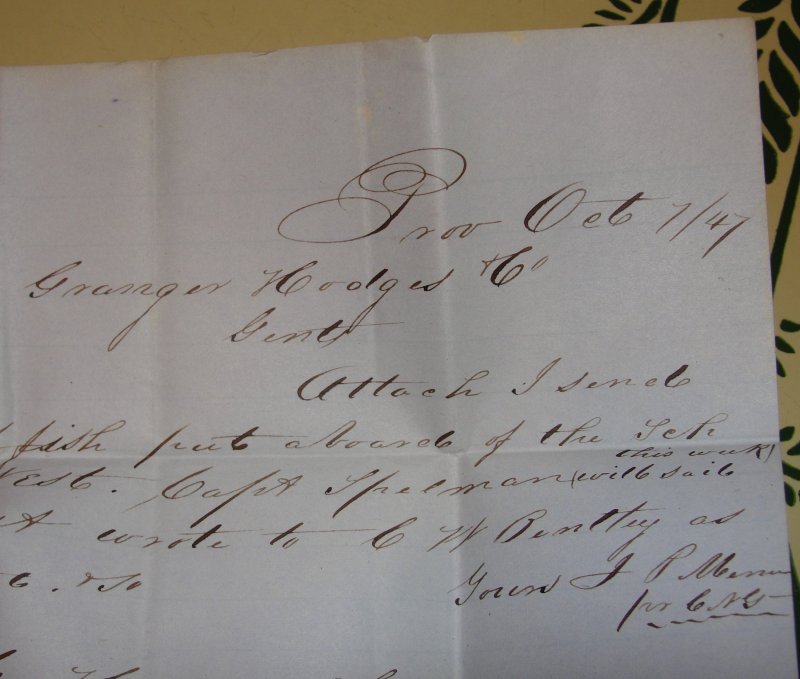 Prov Oct 7/47
Granger Hodges & Co
Gents
Attach I send
fish put aboard of the Sch
this week
West. Capt Spelman (will sail
wrote to C W Bentley as
&c
Yours J P
pr C N G